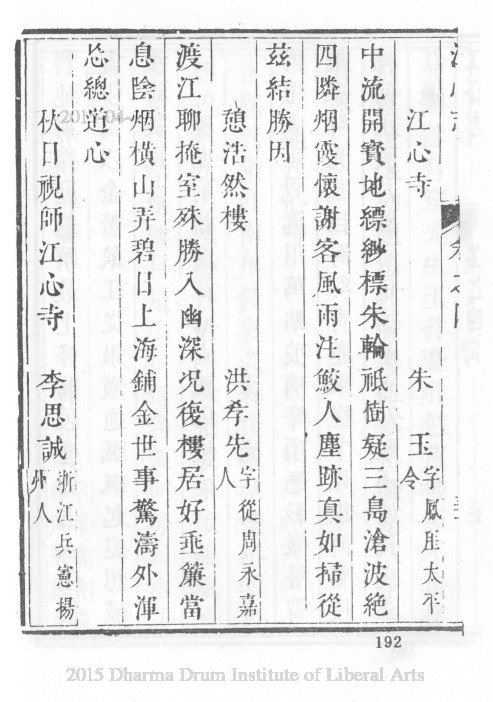 江心寺 朱玉 字鳳 太 令
中流開寶地縹緲標朱輪祗樹疑三島滄波絕
四隣烟霞懷謝客風雨注鮫人塵跡真如掃從
茲結勝因
憩浩然樓 洪孝先 字從周永嘉人
渡江聊掩室殊勝入幽深况復樓居好乖簾當
息陰烟橫山弄碧日上海鋪金世事驚濤外渾
總道心
秋日視師江心寺 李思誠 浙江兵憲揚州人
192
2015 Dharma Drum Institute of Liberal Arts